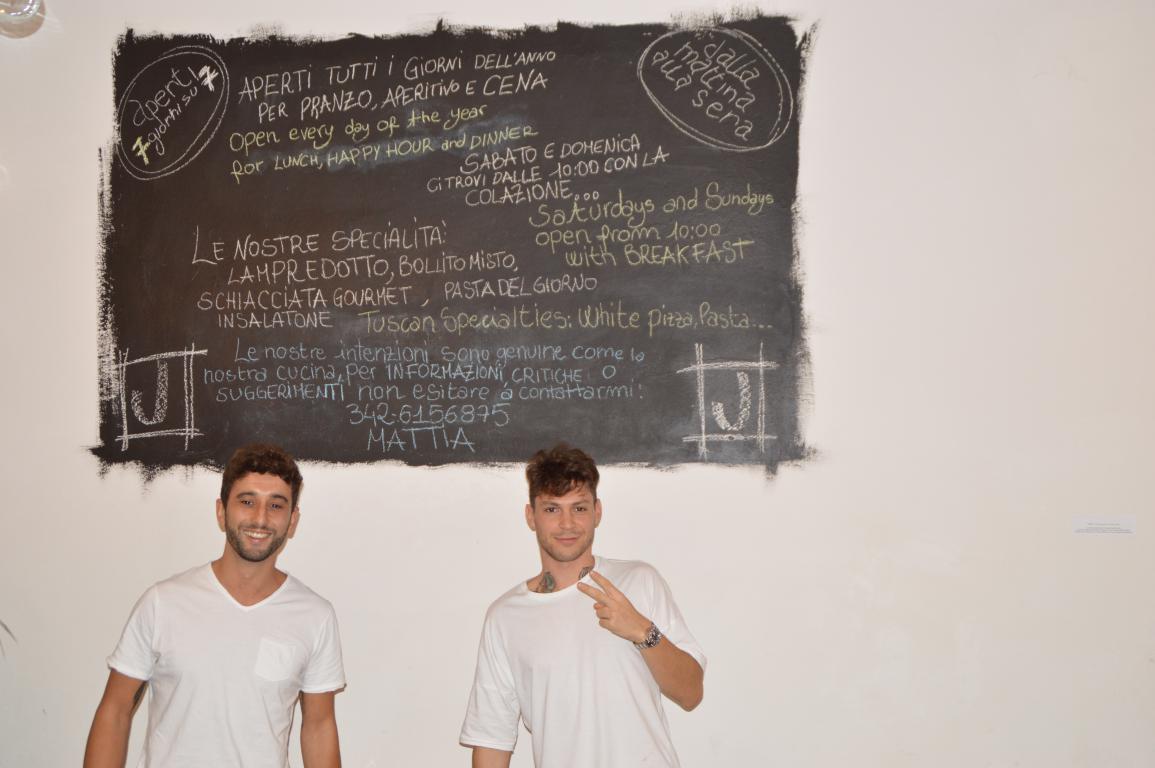 aperti
7 giorni su 7
APERTI TUTTI I GIORNI DELL'ANNO
PER PRANZO, APERITIVO E CENA
open every day of the year
for LUNCH, HAPPY HOUR and DINNER
dalla
mattina
alla sera
SABATO E DOMENICA
CI TROVI DALLE 10:00 CON LA
COLAZIONE...
Saturdays and Sundays
open from 10:00
with BREAKFAST
LE NOSTRE SPECIALITÀ:
LAMPREDOTTO, BOLLITO MISTO,
SCHIACCIATA GOURMET, PASTA DEL GIORNO
INSALATONE Tuscan Specialties: White pizza, Pasta...
Le nostre intenzioni sono genuine come la
nostra cucina, per INFORMAZIONI, CRITICHE O
SUGGERIMENTI non esitare a contattarmi:
342.6156875
MATTIA
J
J